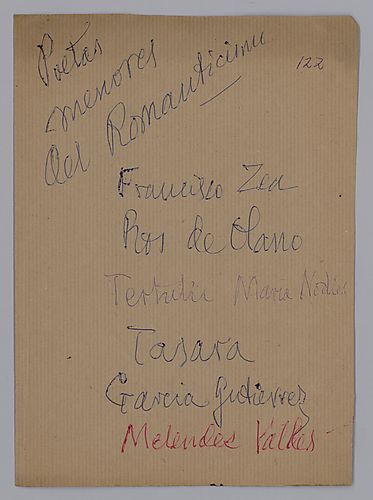 Poetas
menores
del Romanticismo
122
Francisco Zea
Ros de Olano
Tertulia Maria Nodier
Tasara
Garcia Gutierrez
Melendez Valdes